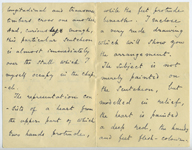 longitudinal and transverse
timbers cross one another
and, curiously enough,
this particular Scutcheon
is almost immediately
over the stall which I
myself occupy in the chap-
el.
The representation con-
sists of a heart from
the upper part of which
two hands protrude,
while the feet protrude
beneath. I enclose
a very rude drawing
which will show you
the arrangement.
The subject is not
merely painted on
the Scutcheon but
modelled in relief.
the heart is painted
a deep red, the hands
and feet flesh-colour.